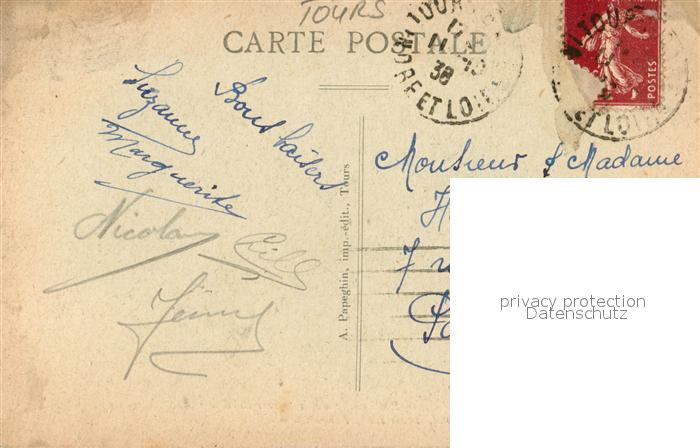 TOURS
CARTE POSTALE
TOURS
38
INDRE ET LOIRE
POSTES
Bons baisers
Suzanne
Marguerite
Nicolas
A. Papeghin, imp.-édit., Tours
Monsieur & Madame
7 r
privacy protection
Datenschutz